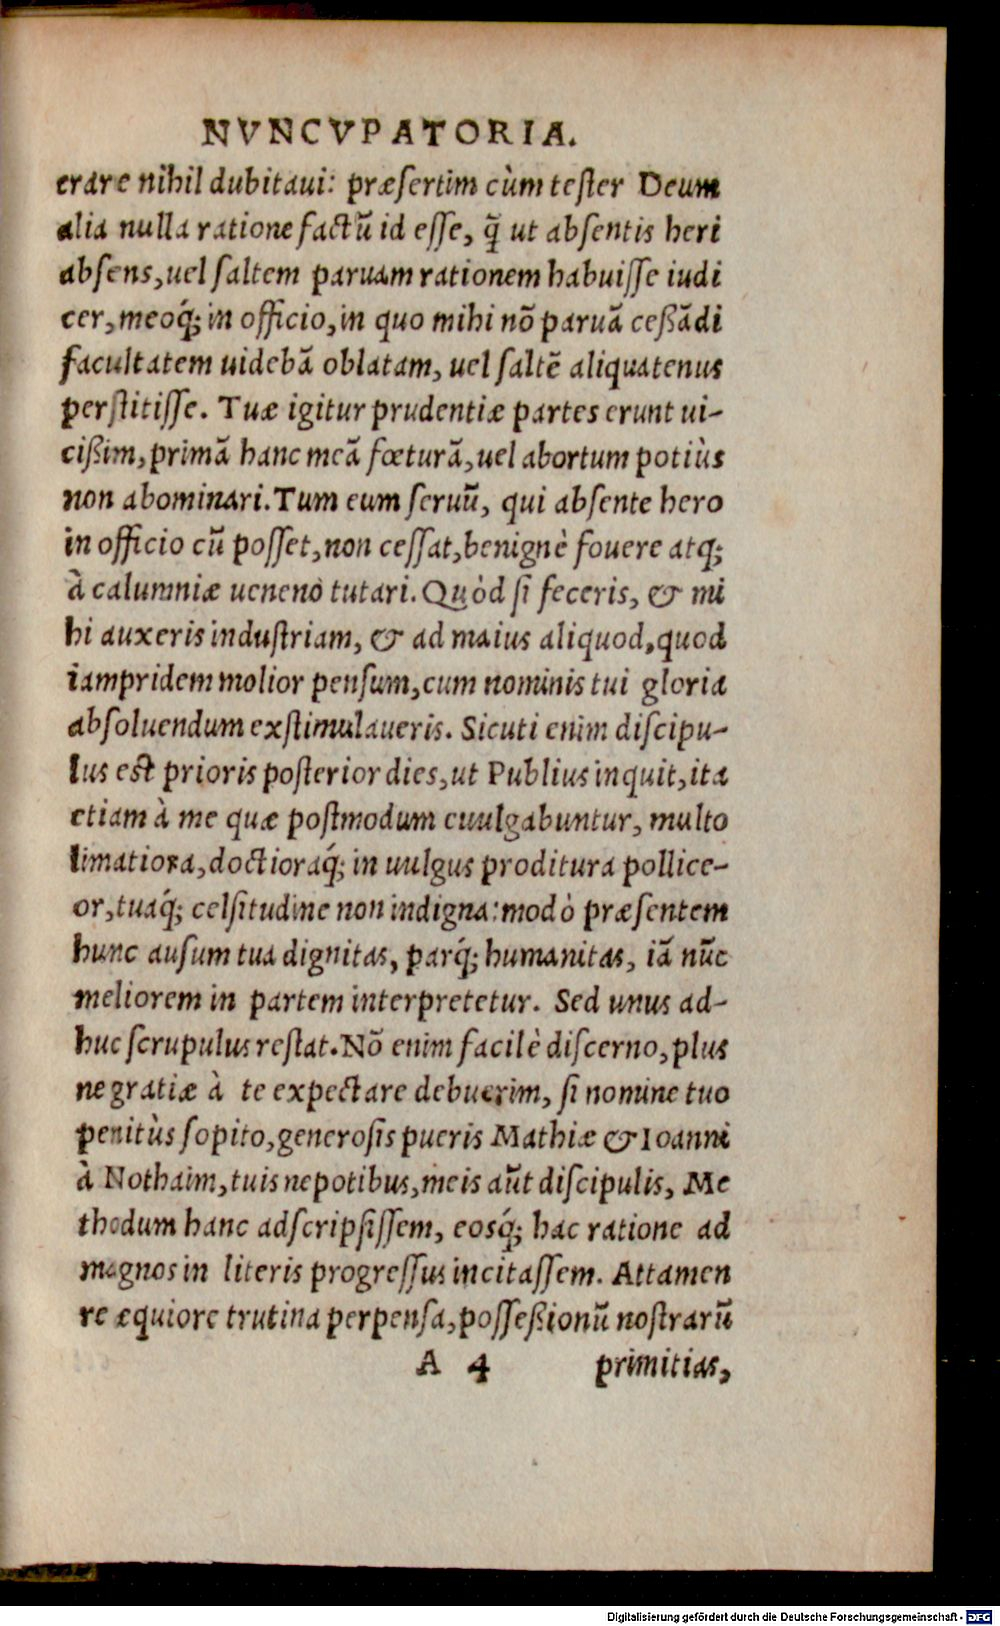 NVNCVPATORIA.
erare nihil dubitaui: præsertim cùm tester Deum
alia nulla ratione factū id esse, q̄ ut absentis heri
absens, uel saltem paruam rationem habuisse iudi
cer, meoq́; in officio, in quo mihi nō paruā ceßādi
facultatem uidebā oblatam, uel saltē aliquatenus
perstitisse. Tuæ igitur prudentiæ partes erunt ui-
cißim, primā hanc meā fœturā, uel abortum potiùs
non abominari. Tum eum seruū, qui absente hero
in officio cū posset, non cessat, benignè fouere atq;
à calumniæ ueneno tutari. Quòd si feceris, & mi
hi auxeris industriam, & ad maius aliquod, quod
iampridem molior pensum, cum nominis tui gloria
absoluendum exstimulaueris. Sicuti enim discipu-
lus est prioris posterior dies, ut Publius inquit, ita
etiam à me quæ postmodum euulgabuntur, multo
limatiora, doctioraq́; in uulgus proditura pollice-
or, tuaq́; celsitudine non indigna: modò præsentem
hunc ausum tua dignitas, parq́; humanitas, iā nūc
meliorem in partem interpretetur. Sed unus ad-
huc scrupulus restat. Nō enim facilè discerno, plus
ne gratiæ à te expectare debuerim, si nomine tuo
penitùs sopito, generosis pueris Mathiæ & Ioanni
à Nothaim, tuis nepotibus, meis aūt discipulis, Me
thodum hanc adscripsissem, eosq́; hac ratione ad
magnos in literis progressus incitassem. Attamen
re æquiore trutina perpensa, posseßionū nostrarū
A 4 primitias,
Digitalisierung gefördert durch die Deutsche Forschungsgemeinschaft - DFG